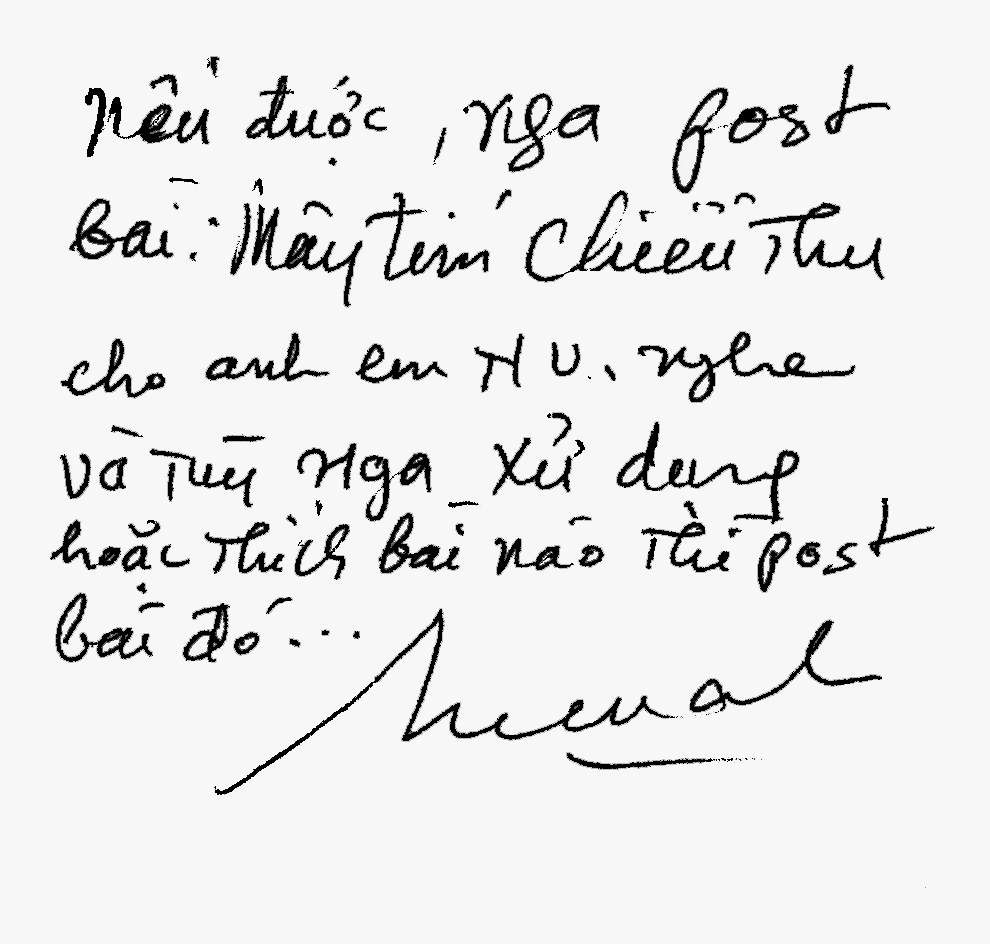 Nếu được, Nga post
Bài: Mây tím Chiều Thu
cho anh em HU. nghe
và Tùy Nga xử dụng
hoặc Thích bài nào Thì post
bài đó...